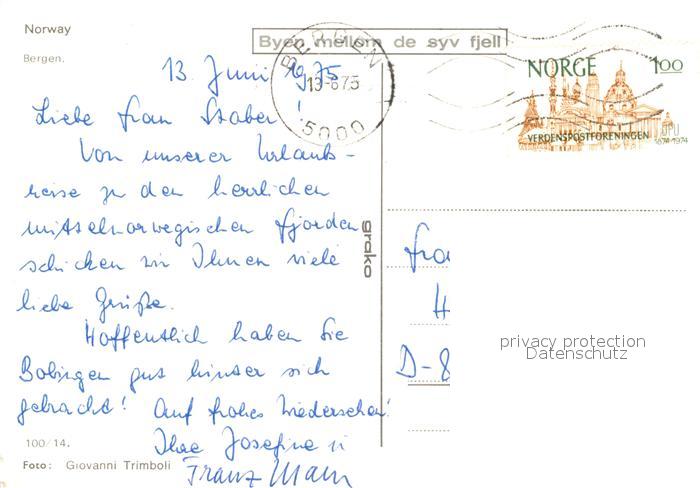 Norway
Bergen.
Byen mellom de syv fjell
BERGEN
5000
NORGE 100
VERDENSPOSTFORENINGEN
UPU
1874-1974
13. Juni 1975
Liebe Frau Staber!
Von unserer Urlaubs-
reise zu den herrlichen
mittelnorwegischen Fjorden
schicken wir Ihnen viele
liebe Grüße.
Hoffentlich haben Sie
Bobingen gut hinter sich
gebracht! Auf frohes Wiedersehen!
Ihre Josefine u
Franz
grako
Fra
H
D-8
privacy protection
Datenschutz
100/14.
Foto: Giovanni Trimboli